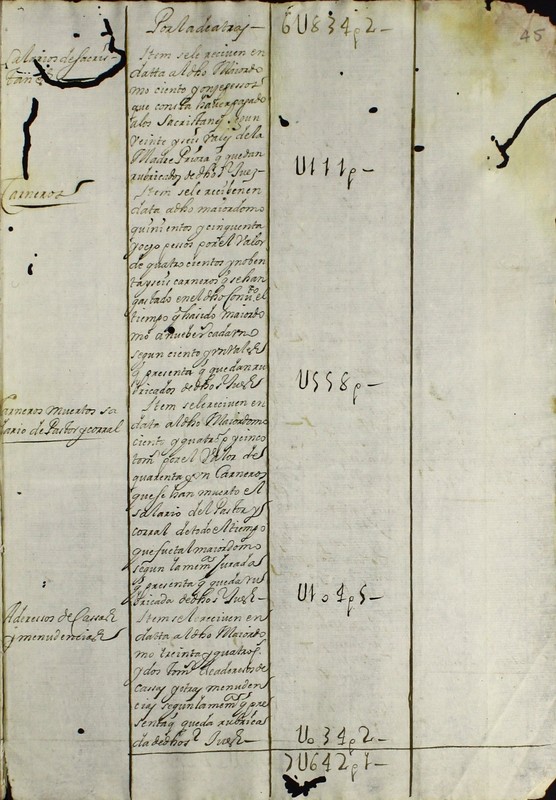 45
Por la de atras — 6U834p2 —
Salarios de Sacris-
tanes
Item se le reciven en
datta al dho Maiordo
mo ciento y onze pesos
que consta haver pagado
a los Sacristanes segun
veinte y seis vales de la
Madre Priora q quedan
rubricados de dho sr Juez — U111p —
Carneros
Item se le reciben en
data a dho maiordomo
quinientos y cinquenta
y ocho pesos por el Valor
de quatrocientos y noben
ta y seis carneros q se han
gastado en el dho Convto el
tiempo q ha sido maiordo
mo a nuebe rs cada vno
segun ciento y vn vales
q presenta q quedan ru
bricados de dho sr Juez — U558p —
Carneros muertos sa
lario de Pastor y corral
Item se le reciven en
data al dho Maiordomo
ciento y quatro ps y cinco
toms por el Valor de
quarenta y vn Carneros
que se han muerto el
salario del Pastor y
corral de todo el tiempo
que fue tal maiordomo
segun la memа Jurada
q presenta q queda ru
bricada de dho sr Juez — U104p5 —
Aderessos de Cassas
y menudencias
Item se le reciven en
datta al dho Maiordo
mo treinta y quatro ps
y dos toms de aderesos de
cassas y otras menuden
cias segun la mema q pre
senta q queda rubrica
da de dho sr Juez — U034p2 —
7U642p1 —